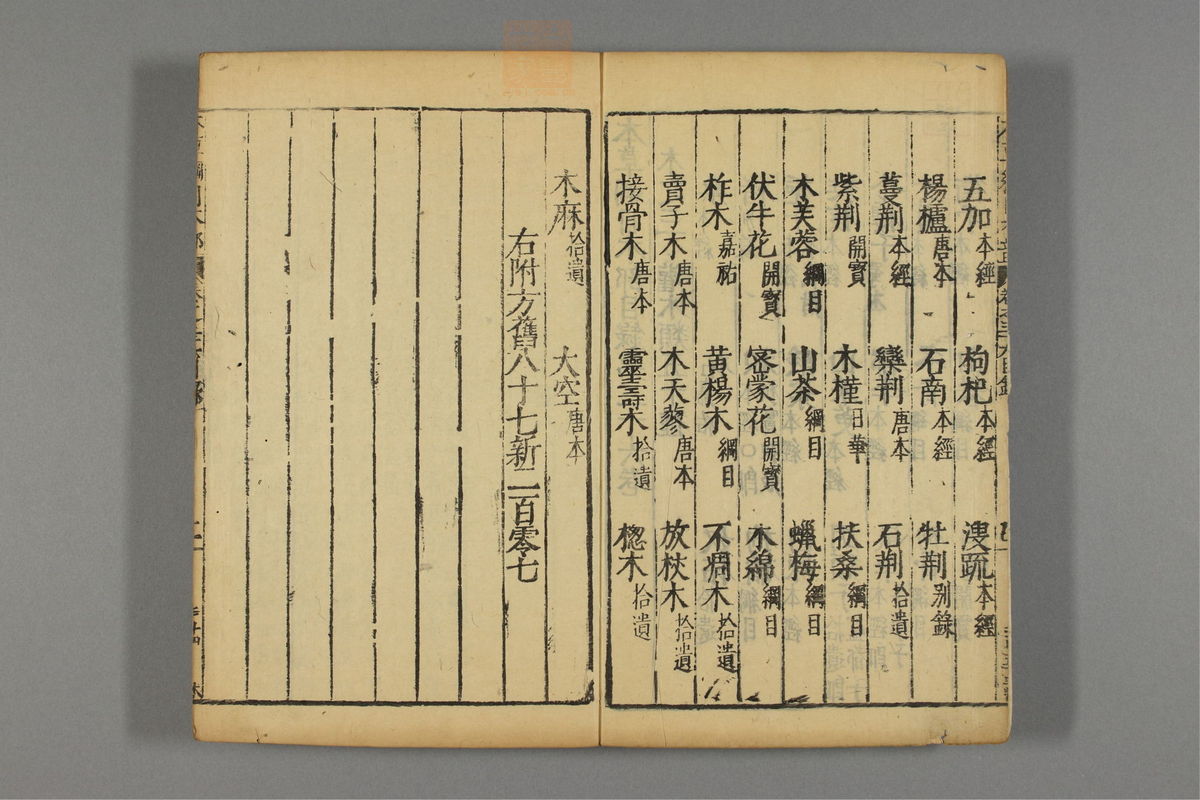 五加本經 枸杞本經 溲疏本經
楊櫨唐本 石南本經 牡荆別錄
蔓荆本經 欒荆唐本 石荆拾遺
紫荆開寳 木槿日華 扶桑綱目
木芙蓉綱目 山茶綱目 蠟梅綱目
伏牛花開寳 宻蒙花開寳 木綿綱目
柞木嘉祐 黄楊木綱目 不凋木拾遺
賣子木唐本 木天蓼唐本 放杖木拾遺
接骨木唐本 靈壽木拾遺 楤木拾遺
木麻拾遺 大空唐本
右附方舊八十七新二百零七